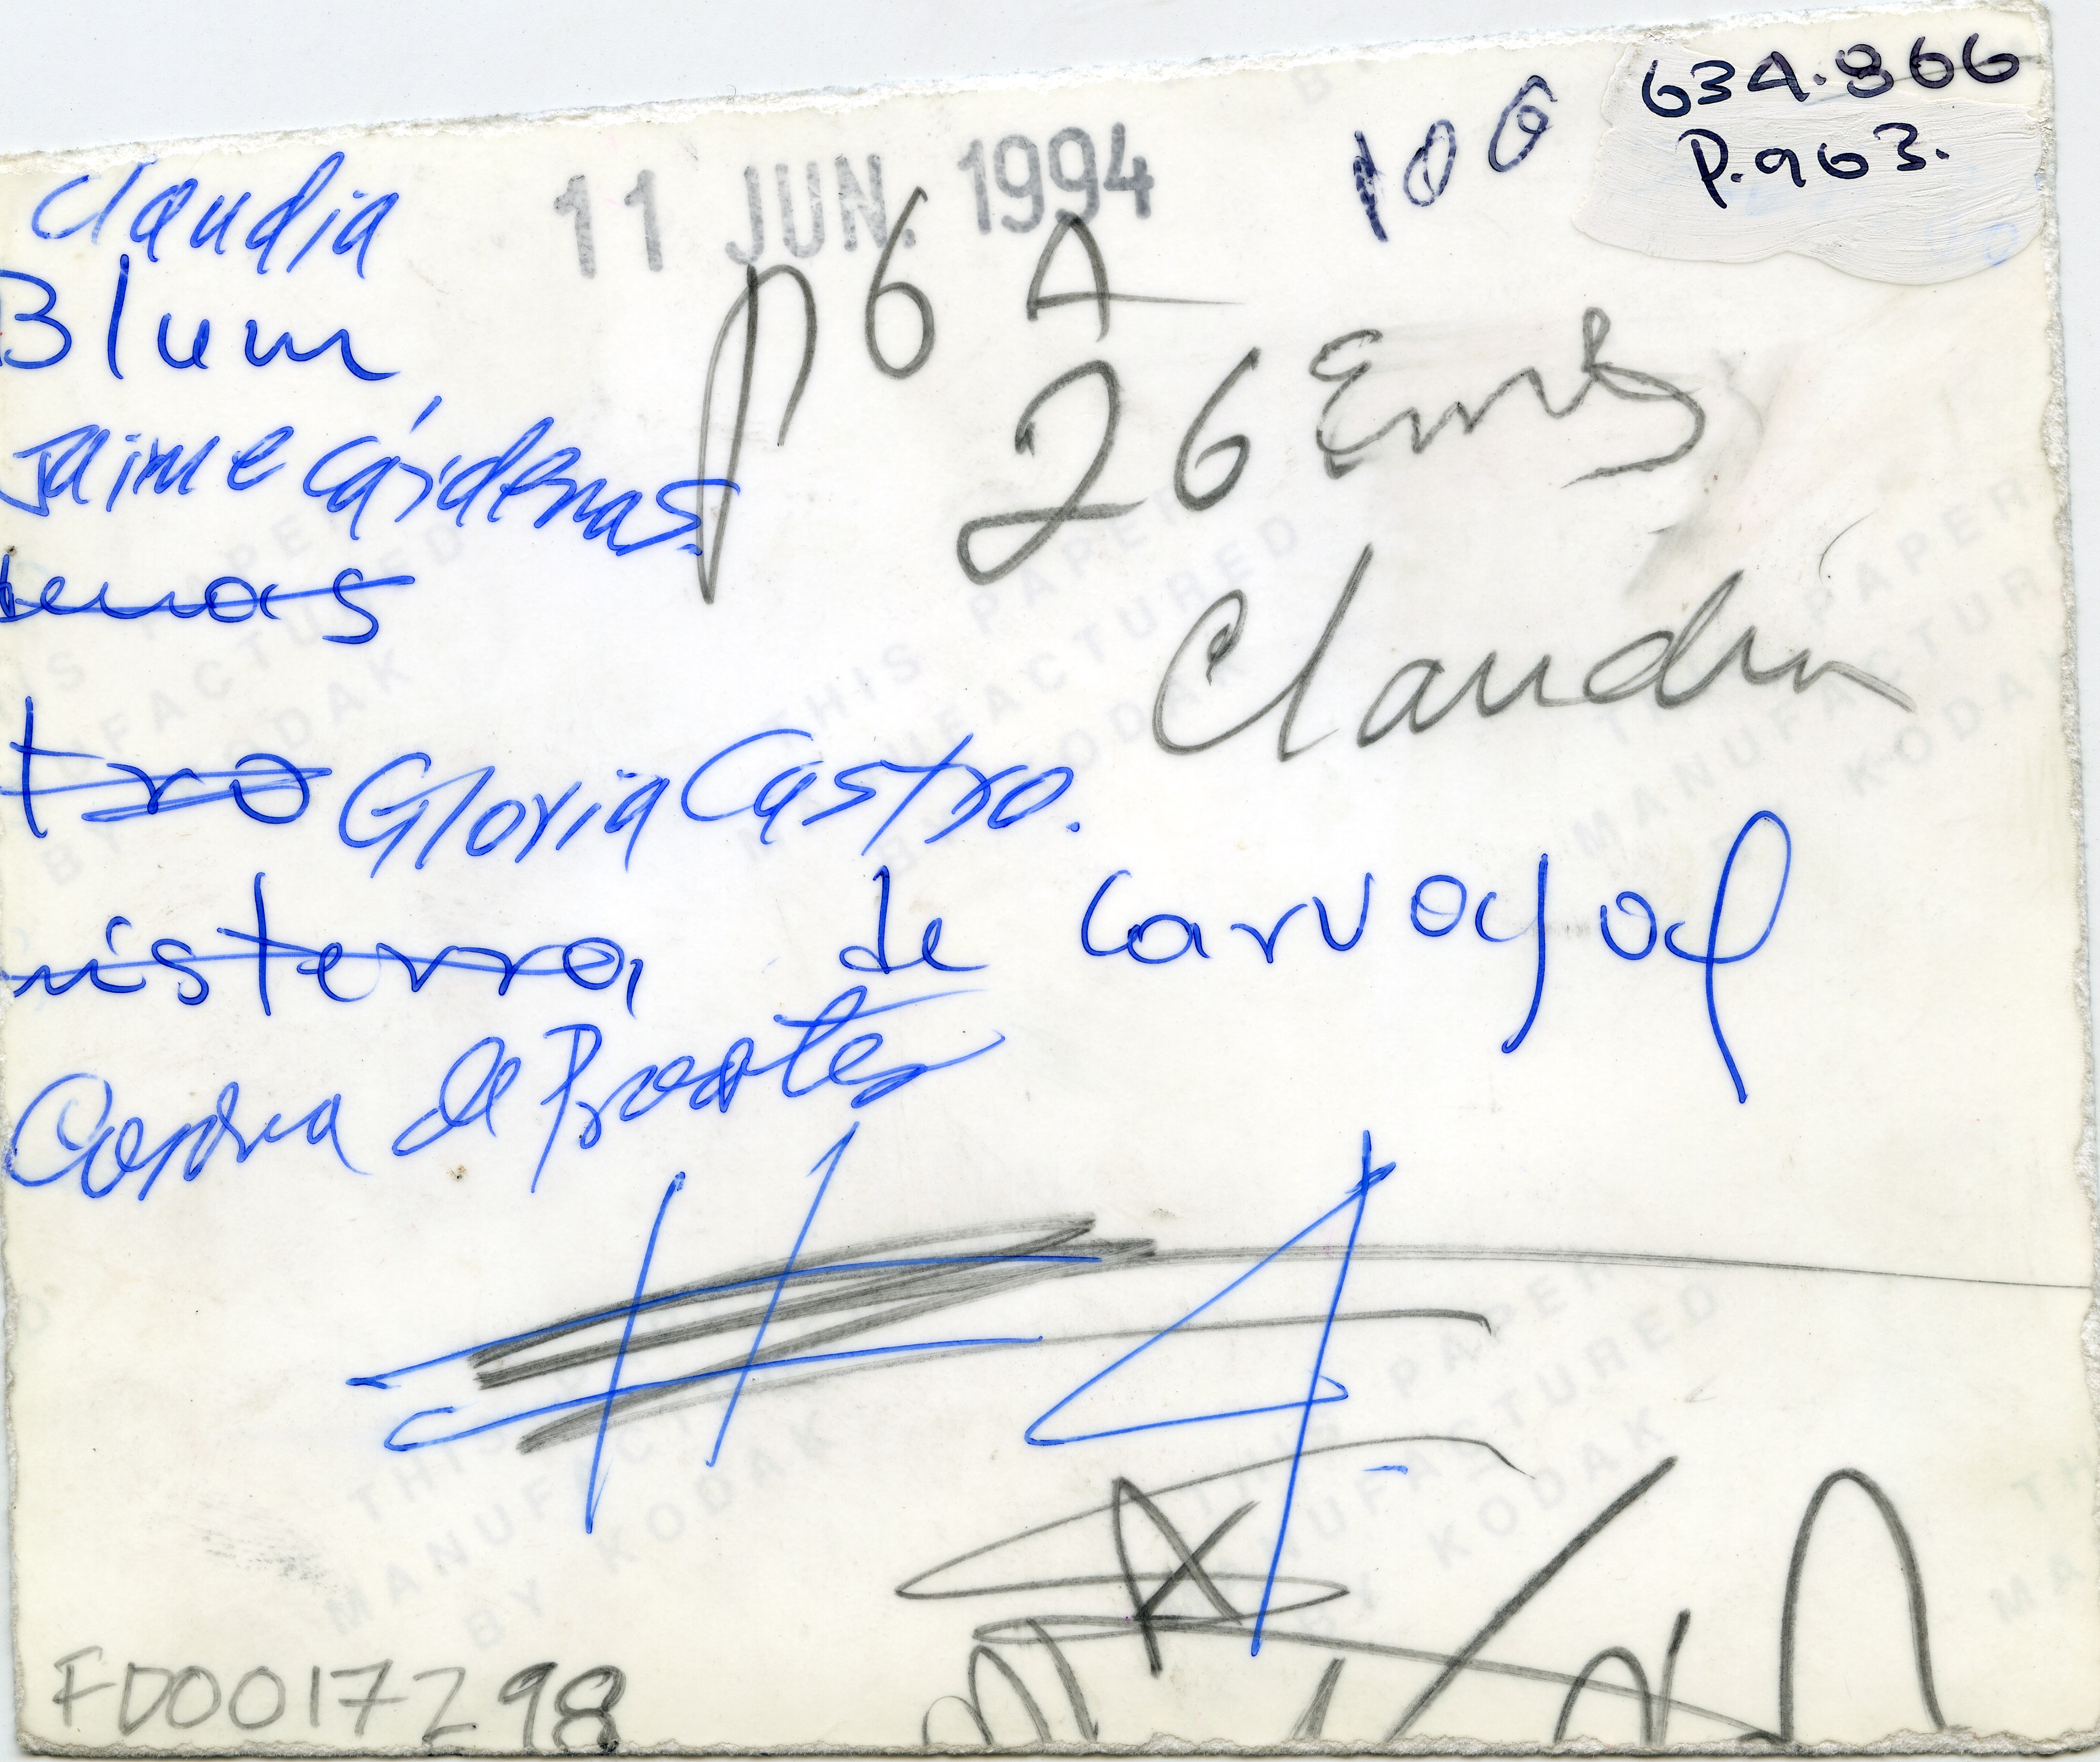 634.866
P.963.
106
11 JUN. 1994
Claudia
Blum
P 6 A
26 Ems
Jaime Cárdenas.
denas
Claudia
tro Gloria Castro.
nisterra, de Carvajal
de
THIS PAPER
MANUFACTURED
BY KODAK
FD0017298